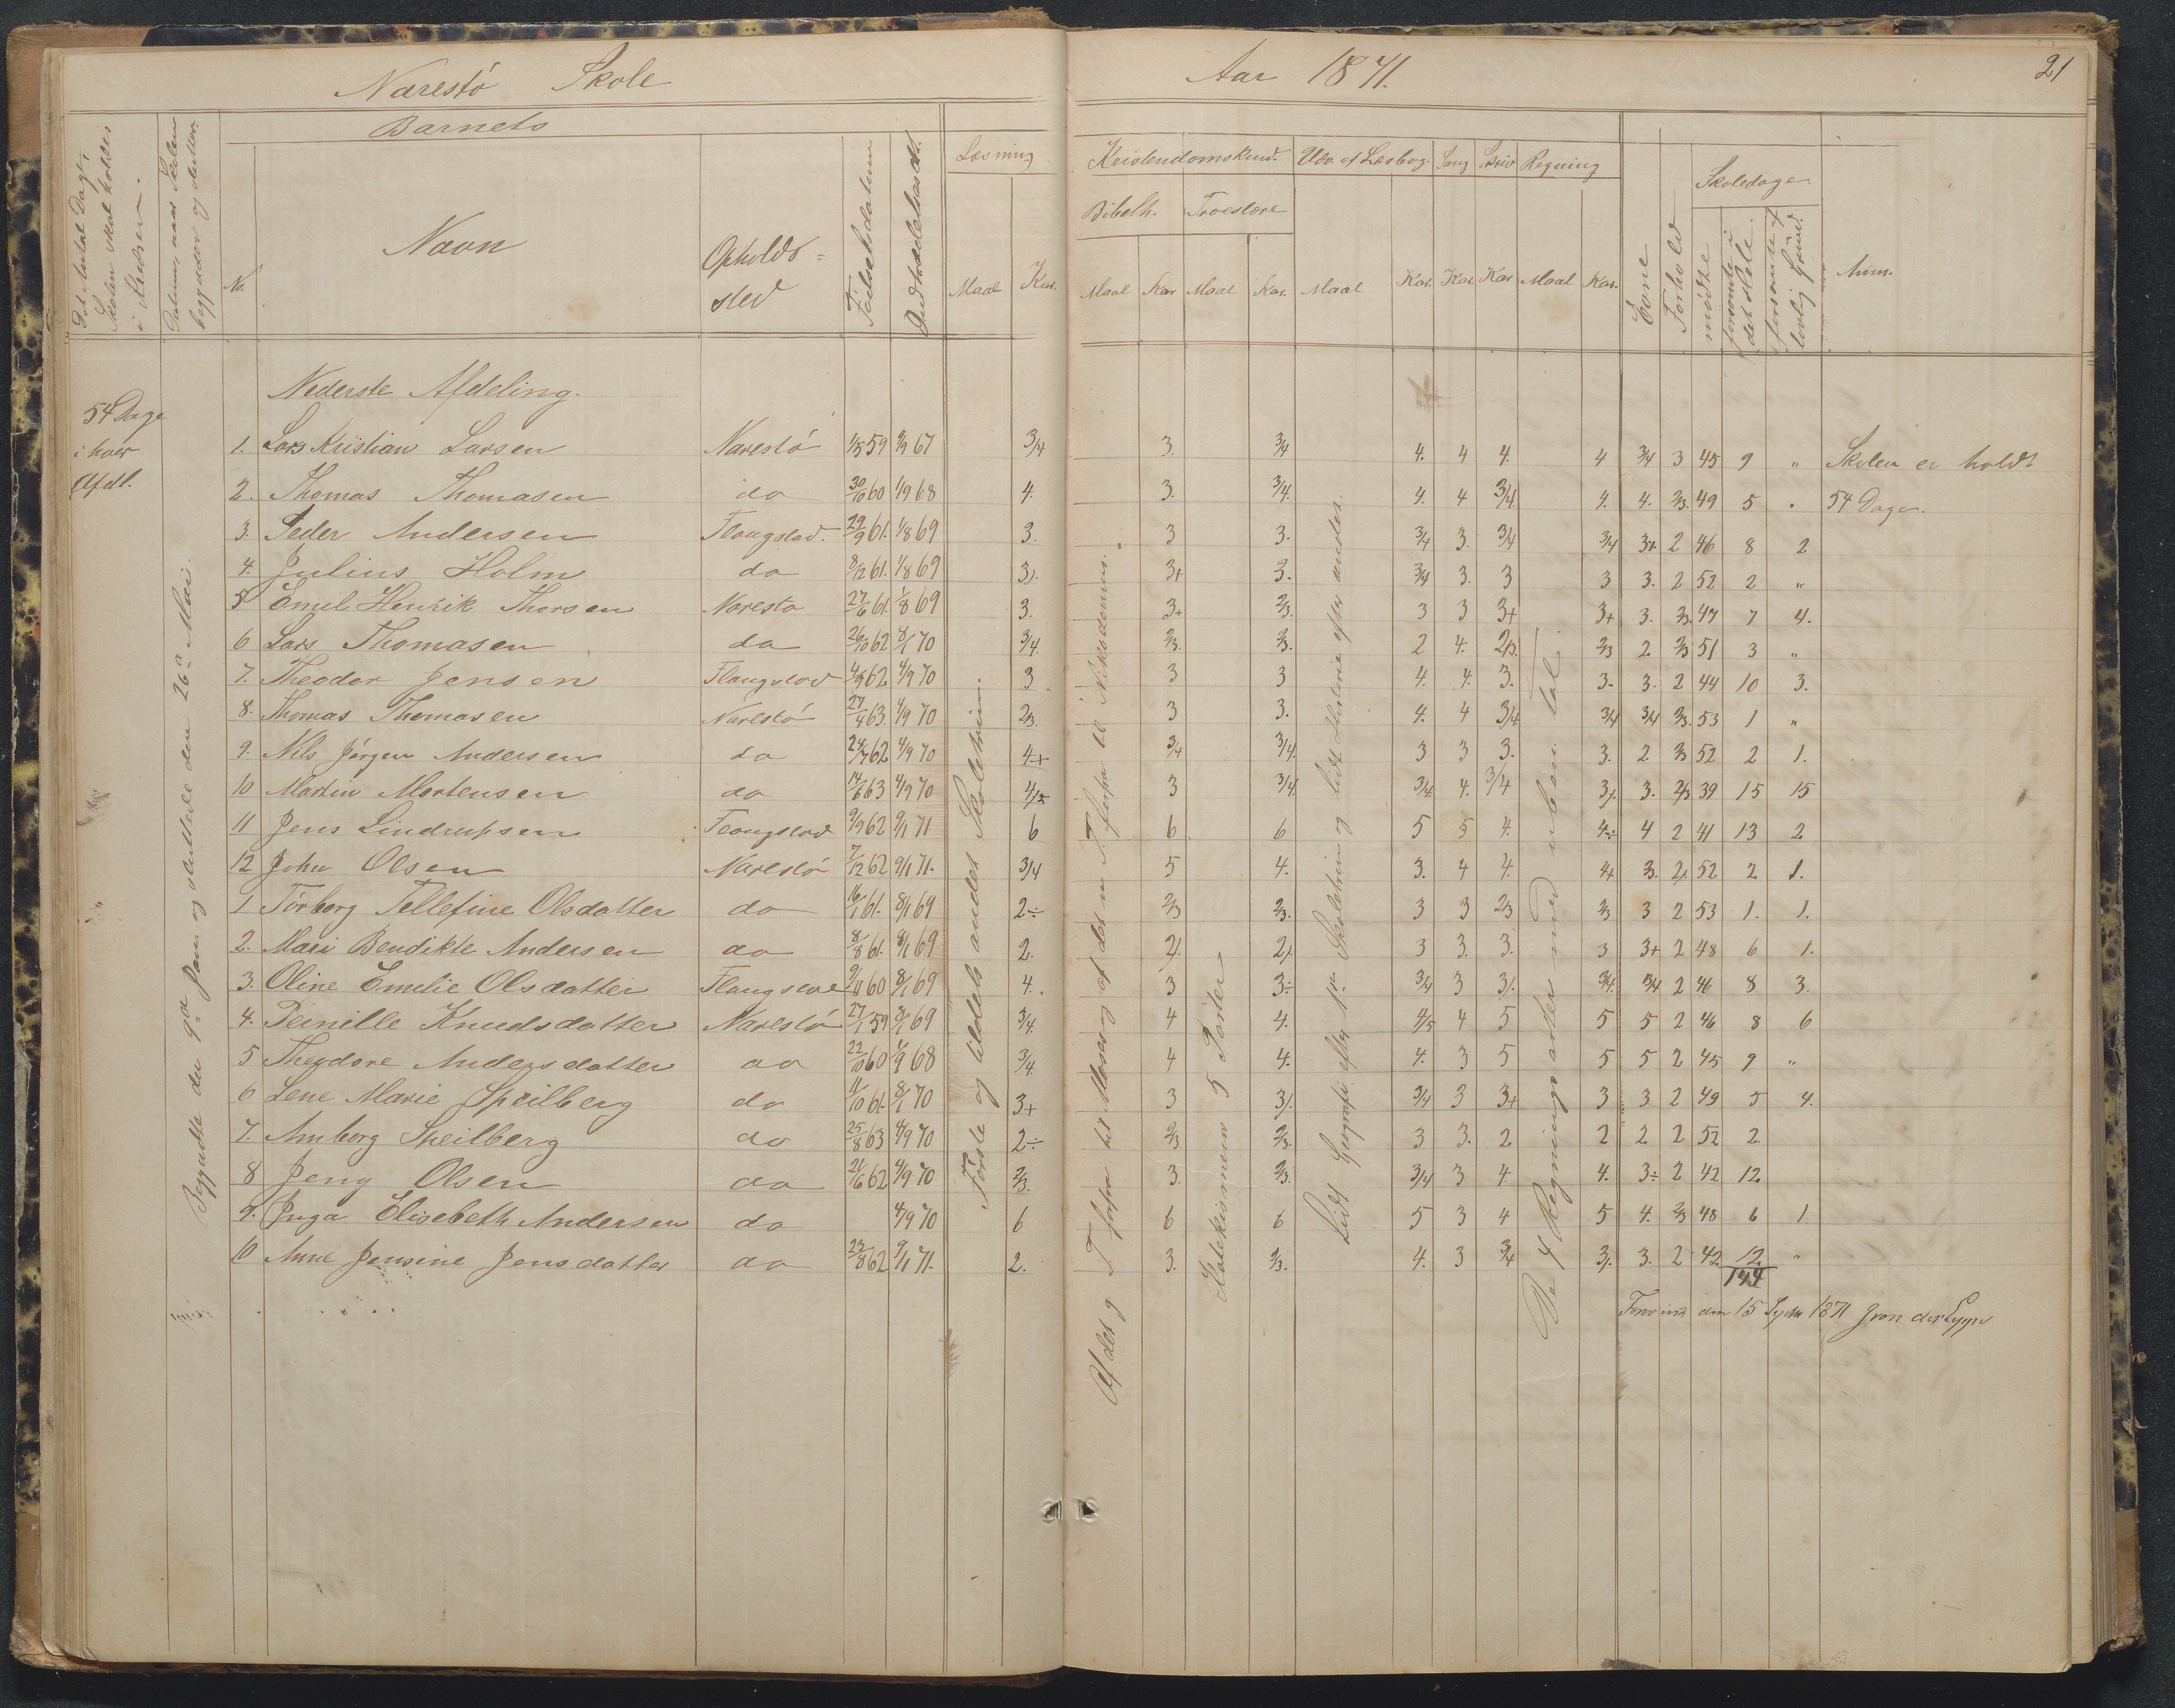 Narestö Skole
Aar 1871.
21
Barnets
Det Antal Dage,
Skolen skal holdes
i Kredsen.
Datum, naar Skolen
begynder og slutter.
No.
Navn
Opholds-
sted
Födselsdatum
Indtrædelsesdt.
Læsning
Maal Kar.
Kristendomskund. Udv. af Læsebog. Sang Skriv Regning
Bibelh. Troeslære
Maal Kar Maal Kar. Maal Kar. Kar. Kar Maal Kar.
Evne
Forhold
mødte
forsømte i
det Hele
forsømte af
lovlig Grund.
Skoledage
Anm.
Nederste Afdeling.
54 Dage
i hver
Afdl.
Begyndte den 9de Janr og sluttede den 26de Mai.
1. Lars Kristian Larsen Narestö 59 67 3/4 3. 3/4 4. 4 4. 4 3/4 3 45 9 " Skolen er holdt
2. Thomas Thomasen do 30/10 60 1/9 68 4. 3. 3/4. 4. 4 3/4 4. 4. 2/3. 49 5 " 54 Dage.
3. Peder Andersen Flangstad. 29/9 61. 1/8 69 3. 3 3. 3/4 3. 3/4 3/4 3+ 2 46 8 2
4. Julius Holm do 8/12 61. 1/8 69 3 3+ 3. 3/4 3. 3 3 3. 2 52 2 "
5 Emil Henrik Thorsen Naresto 27/6 61. 1/8 69 3. 3+ 2/3. 3 3 3+ 3+ 3. 2/3. 47 7 4.
6 Lars Thomasen do 26/10 62 8/1 70 3/4. 2/3. 2/3. 2 4. 2/3. 2/3 2 2/3 51 3 "
7. Theodor Jensen Flangstad 62 4/9 70 3 3 3 4. 4. 3. 3. 3. 2 44 10 3.
8. Thomas Thomasen Narestö 27/4 63. 4/9 70 2/3. 3 3. 4. 4 3/4 3/4 3/4 2/3. 53 1 "
9. Nils Jörgen Andersen do 24/7 62 4/9 70 4+ 3/4 3/4. 3 3 3. 3. 2 2/3 52 2 1.
10 Martin Mortensen do 14/6 63 4/9 70 4/5. 3 3/4. 3/4. 4. 3/4 3. 3. 2/3 39 15 15
11 Jens Lindrupsen Flangstad 9/9 62 9/1 71 6 6 6 5 5 4. 4÷ 4 2 41 13 2
12 John Olsen Narestö 7/12 62 9/1 71. 3/4 5 4. 3. 4 4. 4 3. 2. 52 2 1.
1 Törborg Tellefine Olsdatter do 16/1 61. 8/1 69 2÷ 2/3 2/3. 3 3 2/3 2/3 3 2 53 1. 1.
2. Mari Bendikte Andersen do 8/8 61. 8/1 69 2. 2. 2. 3 3. 3. 3 3+ 2 48 6 1.
3. Oline Emelie Olsdatter Flangstad 9/11 60 8/1 69 4. 3 3÷ 3/4 3 3. 3/4. 3/4 2 46 8 3.
4. Pernille Knudsdatter Narestö 27/1 59 8/1 69 3/4. 4 4. 4/5 4 5 5 5 2 46 8 6
5 Theodore Andersdatter do 22/10 60 9 68 3/4. 4 4. 4. 3 5 5 5 2 45 9 "
6 Lene Marie Speilberg do 11/10 61. 8/1 70 3+ 3 3. 3/4 3 3+ 3 3 2 49 5 4.
7. Amborg Speilberg do 25/8 63 4/9 70 2÷ 2/3 2/3. 3 3. 2 2 2 2 52 2
8 Jeny Olsen do 21/6 62 4/9 70 2/3. 3. 2/3. 3/4 3 4. 4. 3÷ 2 42 12.
9. Inga Elisebeth Andersen do 4/9 70 6 6 6 5 3 4 5 4. 2/3 48 6 1
10 Anne Jensine Jensdatter do 23/8 62 9/1 71. 2. 3. 2/3. 4. 3 3/4 3. 3. 2 42 12. "
144
Förste og tildels andet Skoletrin.
Af det g T forfra til Moses og af det n T forfra til Nikodemus.
Katekismen 5 Parter
Lidt Geografi efter 1ste Skoletrin og lidt Historie efter andet.
De 4 Regningsarter med uben. Tal.
den 15 1871